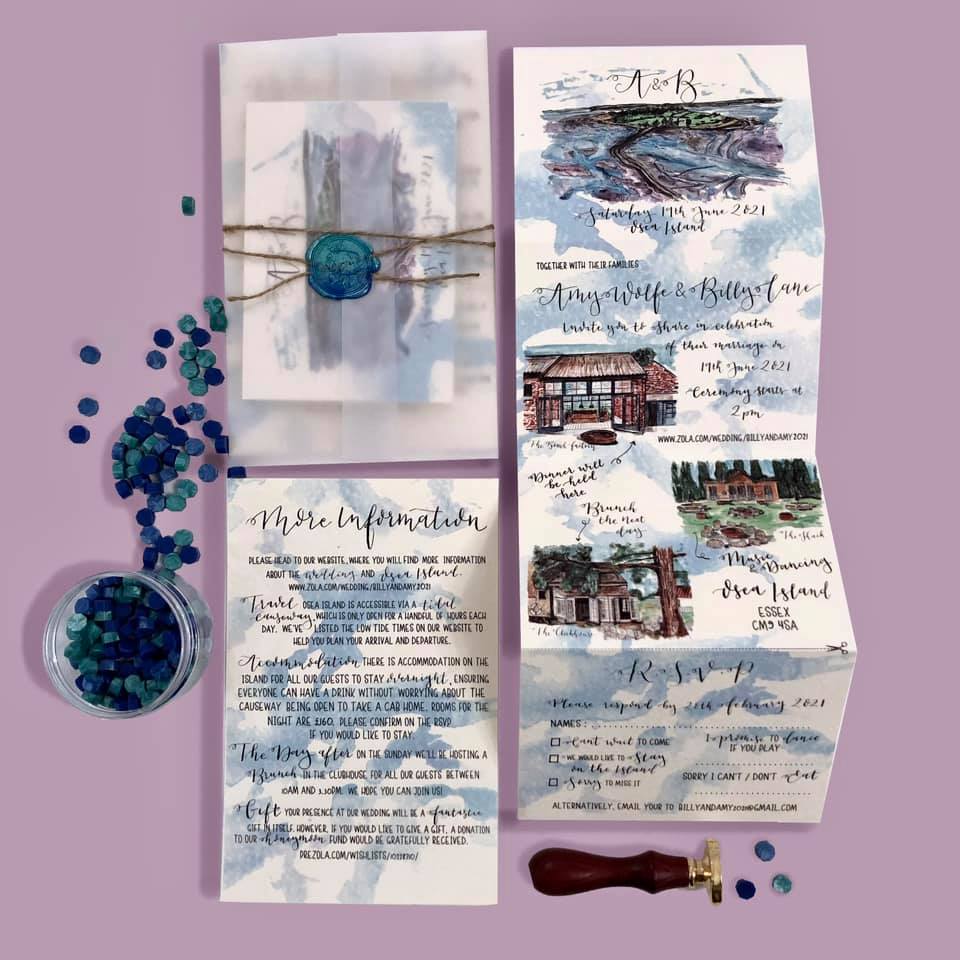 A & B
Saturday 19th June 2021
Osea Island
TOGETHER WITH THEIR FAMILIES
Amy Wolfe & Billy Lane
Invite you to share in celebration
of their marriage on
19th June 2021
Ceremony starts at
2pm
WWW.ZOLA.COM/WEDDING/BILLYANDAMY2021
The Bomb Factory
Dinner will
be held
here
Brunch
the next
day
The Shack
Music
& Dancing
The Clubhouse
Osea Island
ESSEX
CM9 4SA
R.S.V.P
Please respond by 20th February 2021
NAMES:
Can't wait to COME
WE WOULD LIKE TO Stay
on the Island
Sorry TO MISS IT
I promise to dance
IF YOU PLAY
SORRY I CAN'T / DON'T Eat
ALTERNATIVELY, EMAIL YOUR TO BILLYANDAMY2021@GMAIL.COM
More Information
PLEASE HEAD TO OUR WEBSITE, WHERE YOU WILL FIND MORE INFORMATION
ABOUT THE wedding AND Osea Island.
WWW.ZOLA.COM/WEDDING/BILLYANDAMY2021
Travel OSEA ISLAND IS ACCESSIBLE VIA A tidal
causeway, WHICH IS ONLY OPEN FOR A HANDFUL OF HOURS EACH
DAY. WE'VE LISTED THE LOW TIDE TIMES ON OUR WEBSITE TO
HELP YOU PLAN YOUR ARRIVAL AND DEPARTURE.
Accommodation THERE IS ACCOMMODATION ON THE
ISLAND FOR ALL OUR GUESTS TO STAY overnight, ENSURING
EVERYONE CAN HAVE A DRINK WITHOUT WORRYING ABOUT THE
CAUSEWAY BEING OPEN TO TAKE A CAB HOME. ROOMS FOR THE
NIGHT ARE £160. PLEASE CONFIRM ON THE RSVP
IF YOU WOULD LIKE TO STAY.
The Day after ON THE SUNDAY WE'LL BE HOSTING A
Brunch IN THE CLUBHOUSE FOR ALL OUR GUESTS BETWEEN
10AM AND 2.30PM. WE HOPE YOU CAN JOIN US!
Gift YOUR PRESENCE AT OUR WEDDING WILL BE A fantastic
GIFT IN ITSELF. HOWEVER, IF YOU WOULD LIKE TO GIVE A GIFT, A DONATION
TO OUR honeymoon FUND WOULD BE GRATEFULLY RECEIVED.